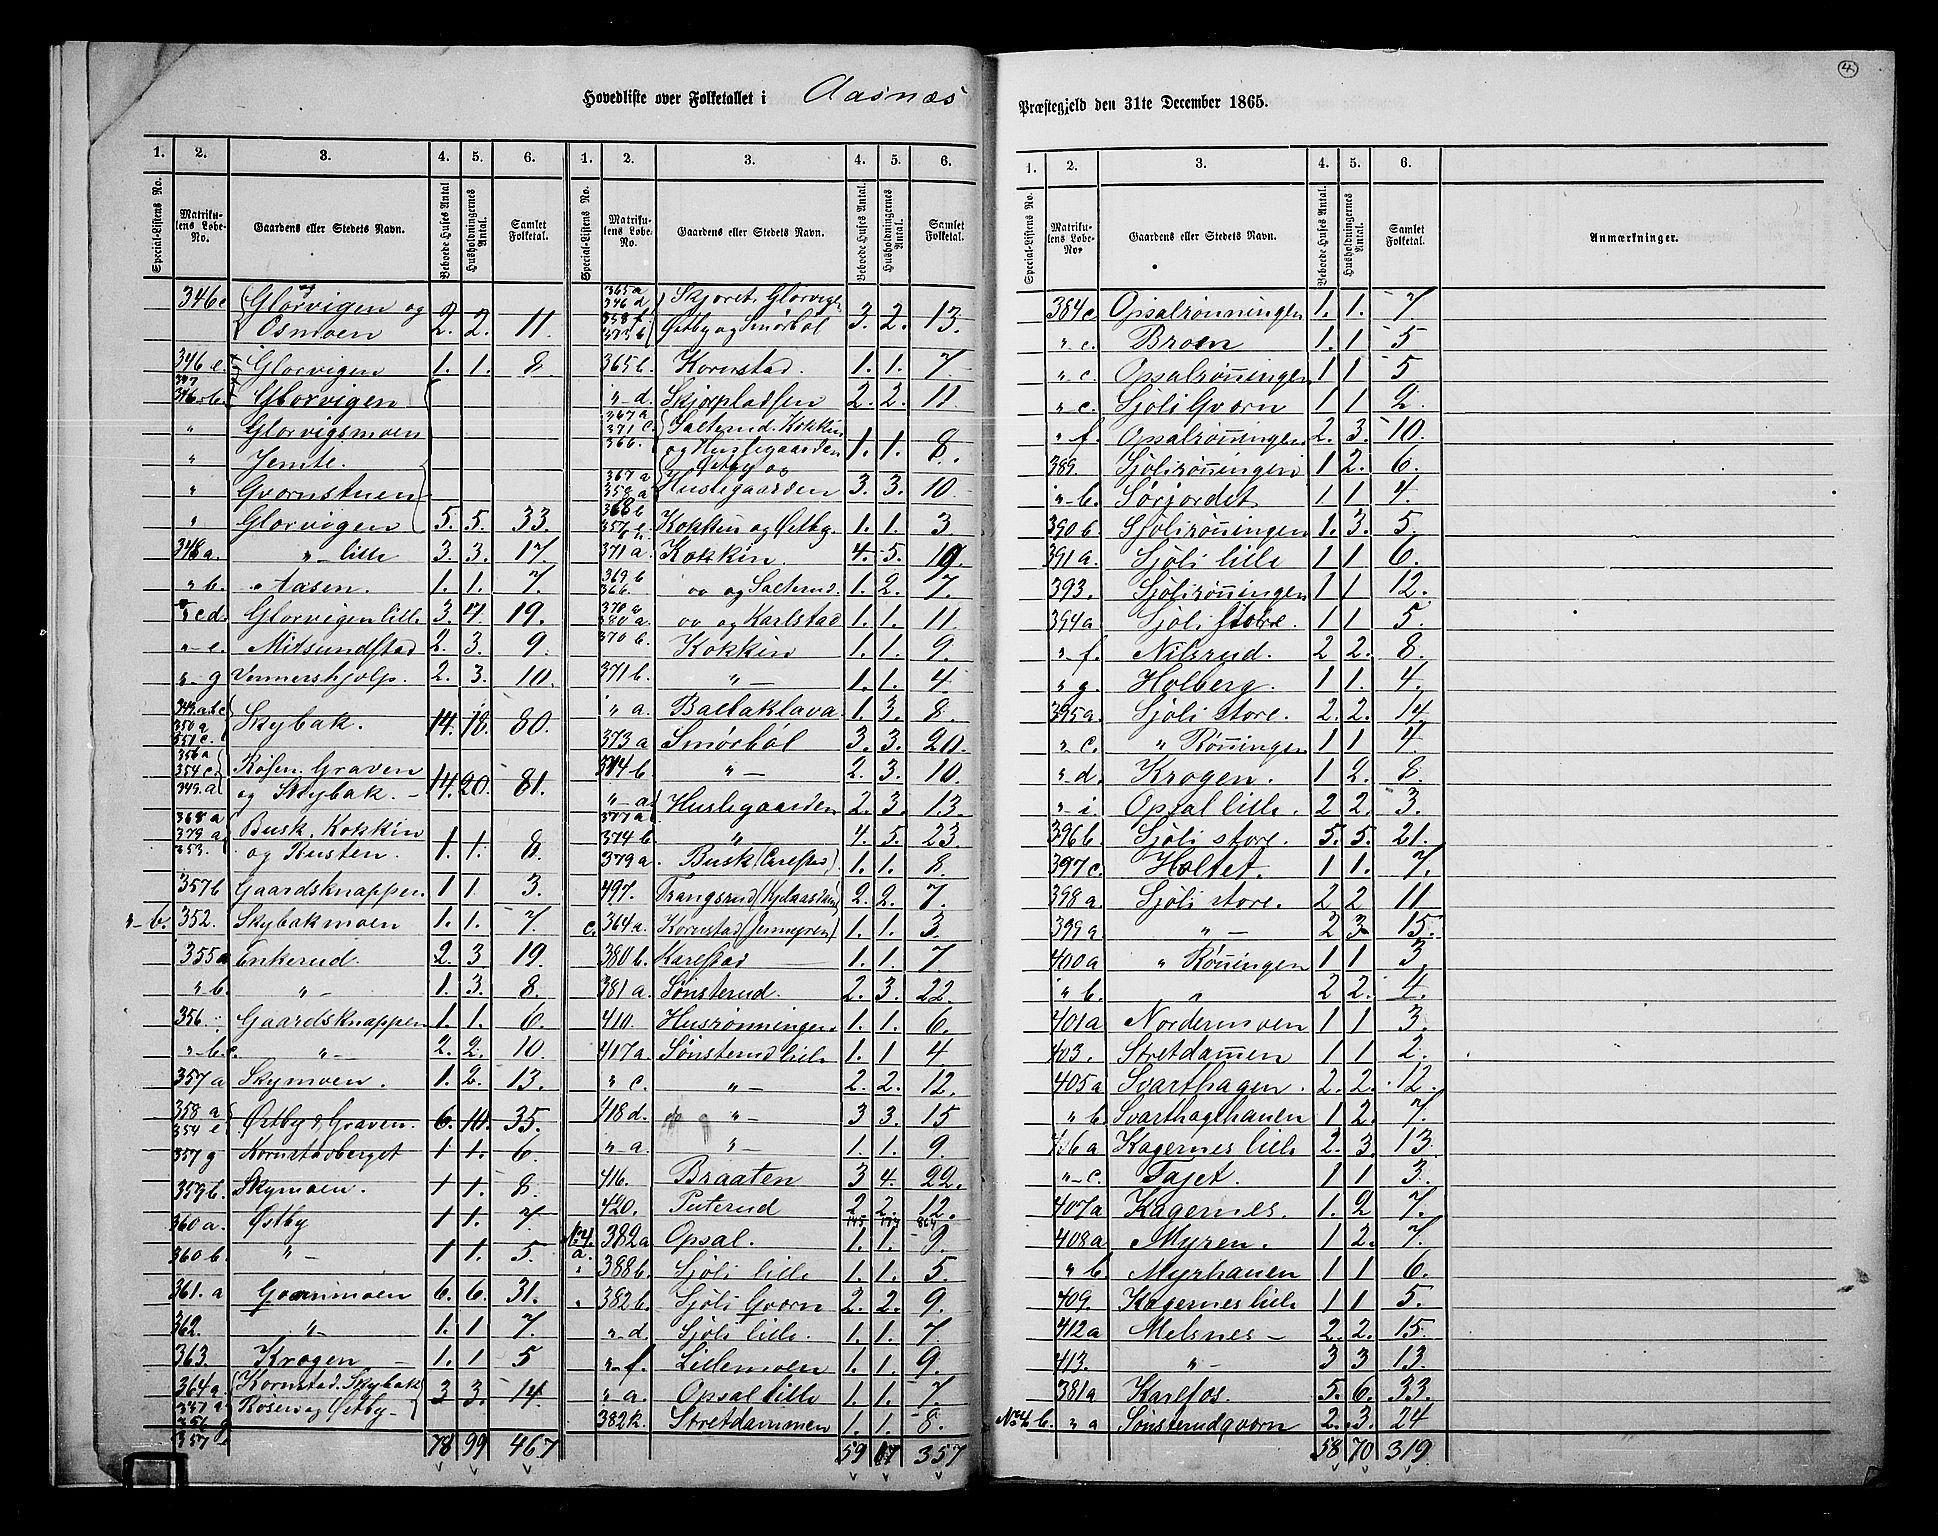 4
Hovedliste over Folketallet i Aasnæs
Præstegjeld den 31te December 1865.
1. 2. 3. 4. 5. 6.
Special-Listens No. Matrikulens Løbe-No. Gaardens eller Stedets Navn. Beboede Huses Antal Husholdningernes Antal. Samlet Folketal.
346c Glorvigen og
Osmoen 2. 2. 11.
346 e. Glorvigen 1. 1. 8
347
346 b. Glorvigen
" Glorvigsmoen
" Jemte.
" Gvornstuen
" Glorvigen 5. 5. 33.
348a. " lille 3. 3. 17.
" b. " Aasen. 1. 1. 7.
" c d. Glorvigen lille 3. 4. 19.
" e. Mitsundstad 2. 3. 9
" g Vennershjolp. 2. 3. 10.
349. a b c
350 a
351 c. Skybak. 14. 18. 80.
356 a
354 c.
349. a Rosen, Graven
og Skybak. 14. 20. 81.
368 a
379 a
353. Busk, Kokkin
og Kusten. 1. 1. 8.
357 b Gaardsknappen 1 1. 3.
" b. 352. Skybakmoen 1. 1. 7.
355a Enkerud. 2. 3 19.
" b. " 1. 3. 8.
356. Gaardsknappen 1. 1. 6.
" b c. " 2. 2. 10.
357 a Skymoen. 1. 2. 13.
358 a
354 e Østby & Graven. 6. 10. 35.
357 g Kornstadberget 1 1. 6.
359b. Skymoen. 1 1. 8.
360 a. Østby 1 1. 7.
360 b. " 1 1. 5.
361. a Goenimoen 6. 6. 31.
362. " 1. 1 7.
363. Krogen 1. 1 5
364a. Kornstad, Skybak
Rosen og Østby 3 3. 14.
357
78 99 467

1. 2. 3. 4. 5. 6.
Special-Listens No. Matrikulens Løbe-No. Gaardens eller Stedets Navn. Beboede Huses Antal. Husholdningernes Antal. Samlet Folketal.
365a
346 d
358 f
373 b Skjoret, Glorvigen
Østby og Smørbøl 3. 2. 13.
365b. Kornstad. 1. 1. 7
" d. Skjorpladsen 2. 2. 11.
367 a
371 c
366. Sæterud, Kokkin
og Huslegaarden 1. 1. 8.
367 a
358 a Østby og
Huslegaarden 3. 3. 10
368 b
357 e Kokkin og Østby. 1. 1. 3
371 a. Kokkin. 4. 5. 19.
369 b
366. " og Sæterud. 1. 2. 7.
370 a
380 a. " og Karlstad 1. 1. 11.
370 b. Kokkin 1. 1. 9.
371 b. " 1. 1. 4.
" a. Ballaklava 1. 3. 8.
373 a Smørbøl 3. 3. 20.
374 b " 2. 3. 10.
" a.
377 a Huslegaarden 2. 3. 13.
374 b. " 4. 5. 23
379 a. Busk (Carlstad) 1. 1. 8.
497. Trangsrud (Kjelaasden) 2. 2. 7.
c. 364a. Kornstad (Jernmyren) 1. 1. 3.
380 b. Karlstad 1. 1. 7
381 a. Sønsterud. 2. 3. 22.
410. Husrønningen 1. 1. 6.
417a. Sønsterud lille 1. 1 4
" c. " 2. 2. 12.
418 d. " 3 3. 15
" a. " 1. 1. 9.
416. Braaten 3 4. 22.
420. Puterud 2 2. 12.
145 177 864
No 4. a. 382a Opsal. 1. 1. 9.
" 388b. Sjöli lille 1. 1. 5.
" 382b. Sjöli Gvorn 2. 2. 9.
" d. Sjöli lille. 1. 1. 7
" f. Lillemoen 1. 1. 9.
" a. Opsal lille 1. 1. 7.
382k. Stretdammen 1. 1. 8.
59 67 357

1. 2. 3. 4. 5. 6.
Special-Listens No. Matrikulens Løbe-No. Gaardens eller Stedets Navn. Beboede Huses Antal. Husholdningernes Antal. Samlet Folketal. Anmærkninger.
384c. Opsalrønningen 1. 1. 7
" c. Broen 1. 1 5
" c. Opsalrön̄ingen 1 1 5
" c. Sjöli Gvorn 1 1 2
" f. Opsalrön̄ingen 2. 3. 10.
389. Sjölirön̄ingen 1 2. 6.
" b. Sørjordet 1 1 4.
390b. Sjölirön̄ingen 1. 3. 5.
391a. Sjöli lille 1 1 6.
393. Sjölirön̄ingen 1 1 12.
394a Sjöli store. 1 1. 5.
" f. Nilsrud. 2 2. 8.
" g. Holberg. 1 1. 4.
395a. Sjöli store. 2. 2. 14.
" c. " Rön̄ingen 1 1 4.
" d. Krogen. 1 2. 8.
" i. Opsal lille. 2 2. 3.
396b. Sjöli store. 5. 5. 21.
397c. Holtet. 1 1. 7.
398 a. Sjöli store. 2 2 11
399a. " 2 3 15.
400a " Rön̄ingen 1 1 3
" b. " 2 2. 4.
401a Nordermoen 1 1 3.
403. Stretdam̄en 1 1 2.
405a Svarthagen. 2. 2. 12.
" b Svarthaghauen 1 2. 7.
406a Kagernes lille 2. 3. 13.
" c. Tajet. 1 1 3.
407a Kagernes. 1. 2 7.
408a Myren. 1 2. 7.
" b. Myrhauen 1 1 6.
409. Kagernes lille 1 1 5.
412a Melsnes 2. 2. 15.
413. " 3 3 13.
381a Karlfos. 5. 6. 33.
No 4 b. " a Sønsterudgvorn 2. 3. 24
58 70 319